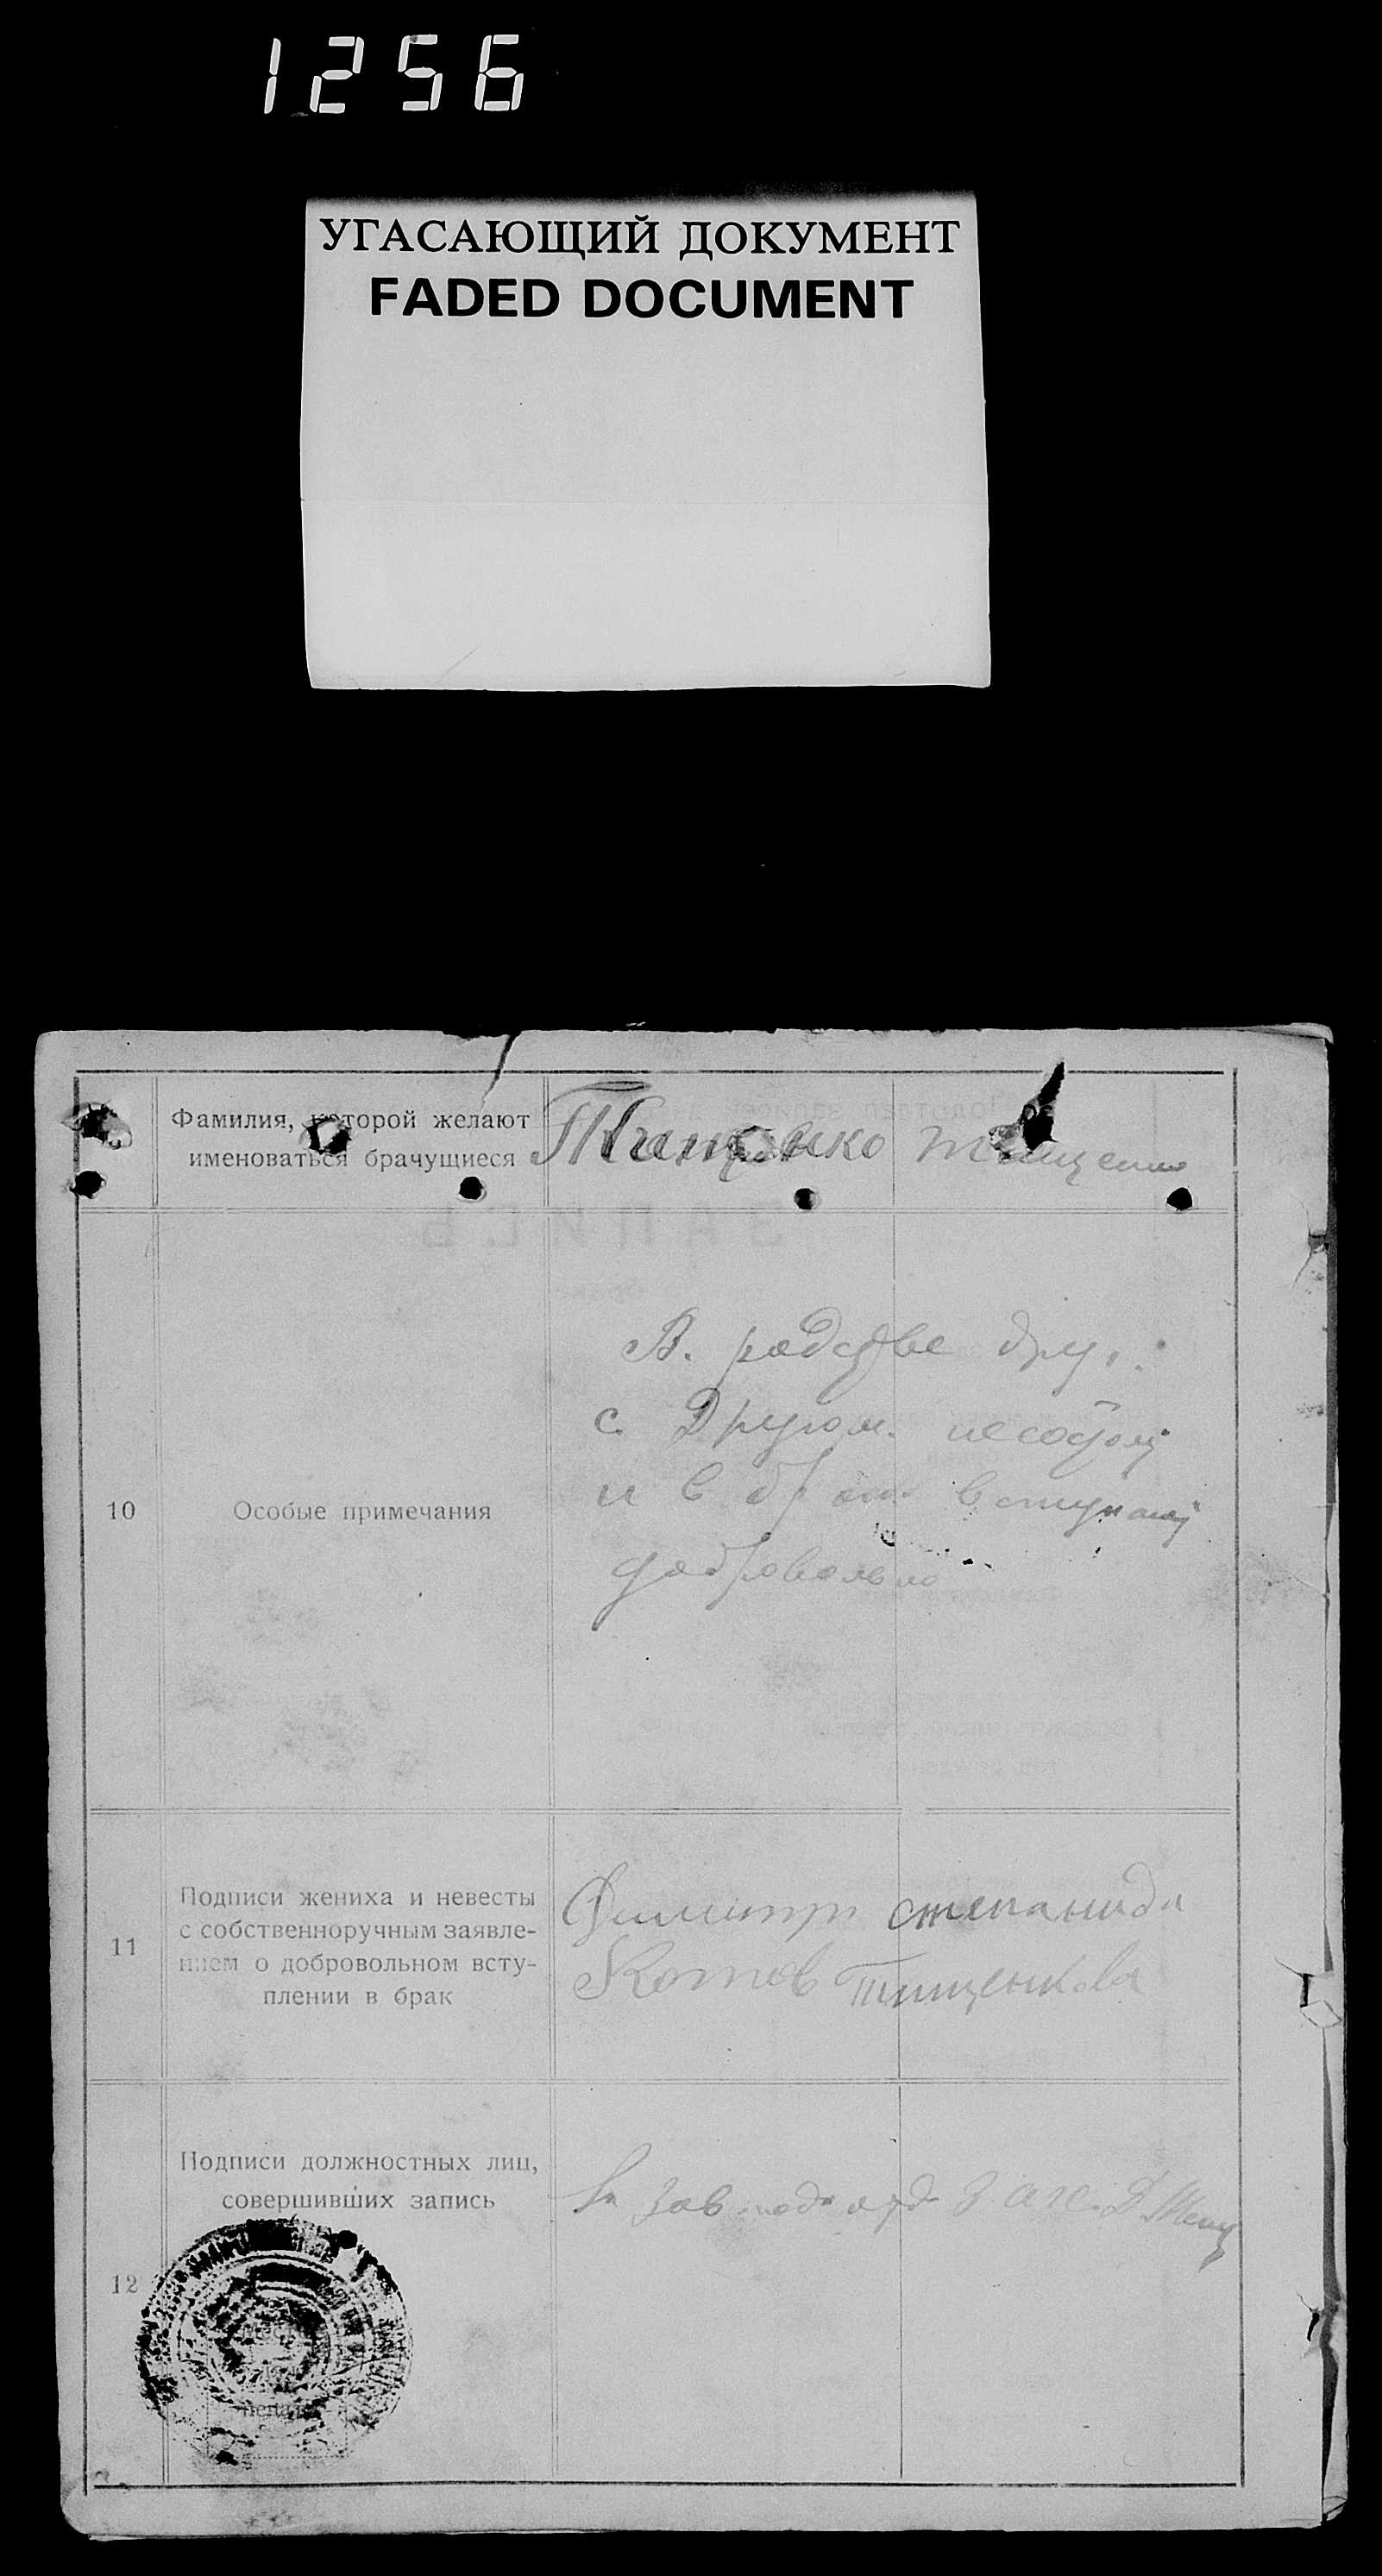 1256
УГАСАЮЩИЙ ДОКУМЕНТ
FADED DOCUMENT
Фамилия, которой желают
именоваться брачущиеся
Тищенко Тищенко
10
Особые примечания
В родстве друг
с Другом не состоят
и в брак вступают
добровольно
11
Подписи жениха и невесты
с собственноручным заявле-
нием о добровольном всту-
плении в брак
Димитри степанида
Котов Тищенкова
12
Подписи должностных лиц,
совершивших запись
Зав под отд З А Г С